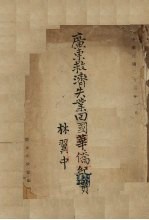 廣東救濟失業回國華僑紀實
林翼中